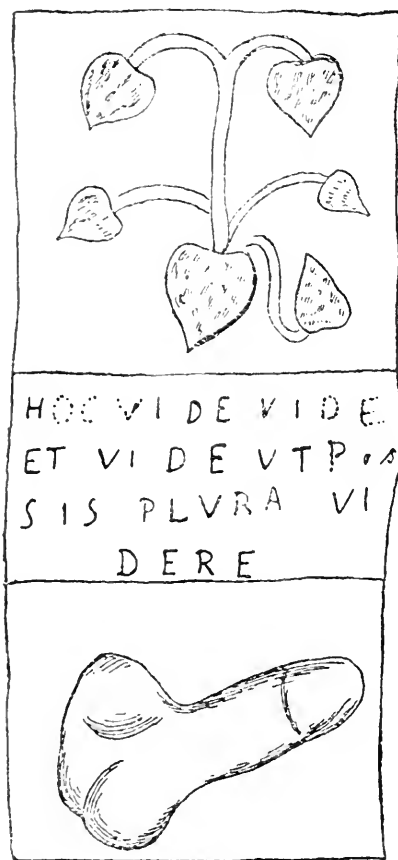 HOC VIDE VIDE
ET VIDE VT POS
SIS PLVRA VI
DERE